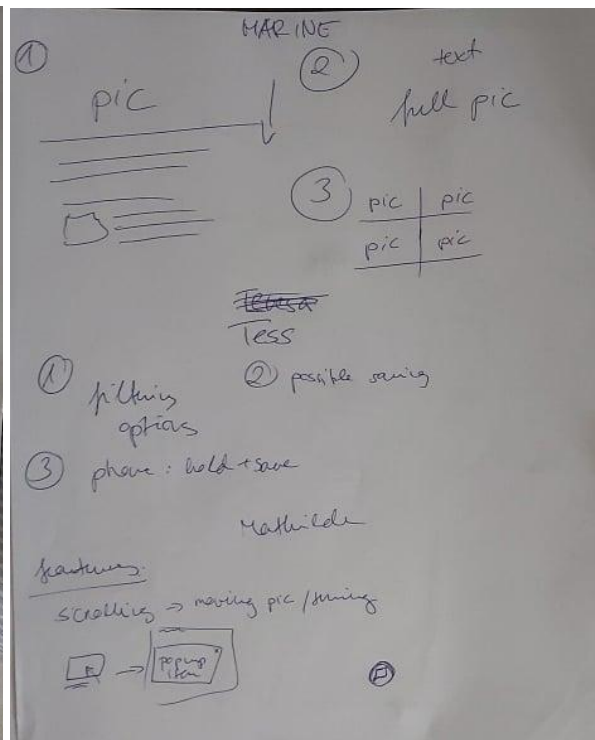 MARINE
① pic
② text
full pic
③ pic pic
pic pic
Tess
① filtring
options
② possible saving
③ phone : hold + save
Mathilde
features:
scrolling → moving pic /
→ popup
item